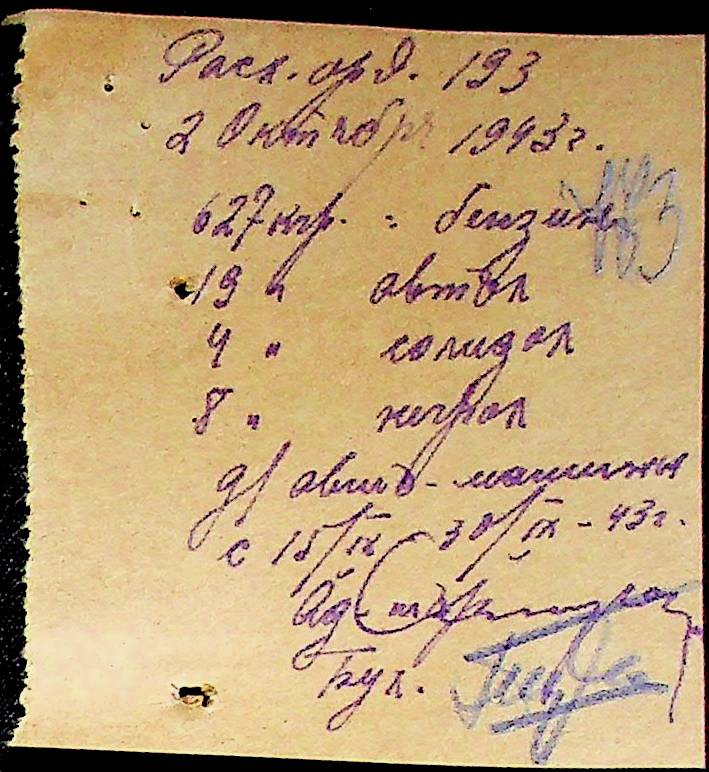 Расх. орд. 193
2 Октября 1943г.
627 кгр. " бензин
19 " автол
4 " солидол
8 " нигрол
д/ авто-машины
с 15/IX - 30/IX - 43г.
Бух.